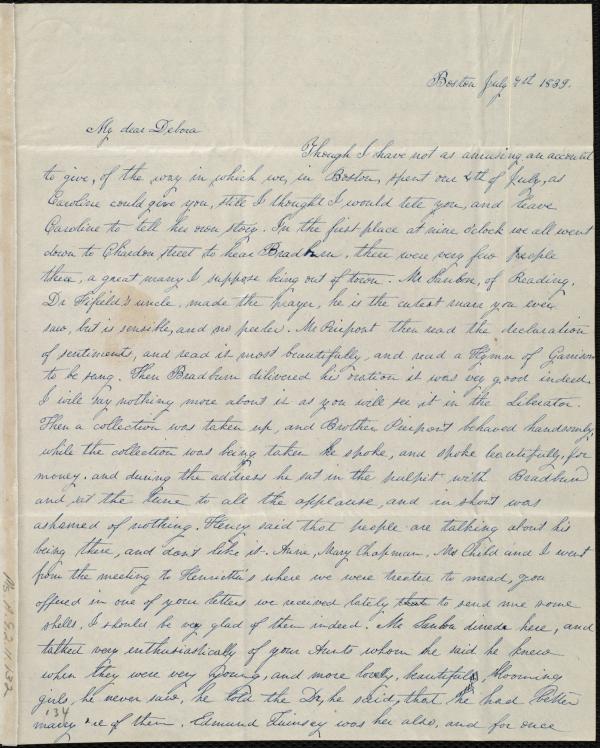 Boston July 7th 1839.
My dear Debora
Though I have not as amusing an account
to give, of the way in which we, in Boston, spent our 4th of July, as
Caroline could give you, still I thought I would tell you, and leave
Caroline to tell her own story. In the first place at nine o'clock we all went
down to Chardon street to hear Bradburn, there were very few people
there, a great many I suppose being out of town. Mr Sanborn, of Reading,
Dr Fifield's uncle, made the prayer, he is the cutest man you ever
saw, but is sensible, and no peeler. Mr Pierpont then read the declaration
of sentiments, and read it most beautifully, and read a Hymn of Garrison
to be sung. Then Bradburn delivered his oration it was very good indeed.
I will say nothing more about it as you will see it in the Liberator.
Then a collection was taken up, and Brother Pierpont behaved handsomely,
while the collection was being taken he spoke, and spoke beautifully, for
money, and during the address he sat in the pulpit with Bradburn
and set the tune to all the applause, and in short was
ashamed of nothing. Henry said that people are talking about his
being there, and don't like it. Anne, Mary Chapman, Mrs Child and I went
from the meeting to Henrietta's where we were treated to mead, you
offered in one of your letters we received lately to send me some
shells, I should be very glad of them indeed. Mr Sanborn dined here, and
talked very enthusiastically of your Aunts whom he said he knew
when they were very young, and more lovely, beautiful, blooming
girls, he never saw, he told the Dr, he said, that he had better
marry one of them. Edmund Quincy was here also, and for once
134
Ms.A.9.2.11.132